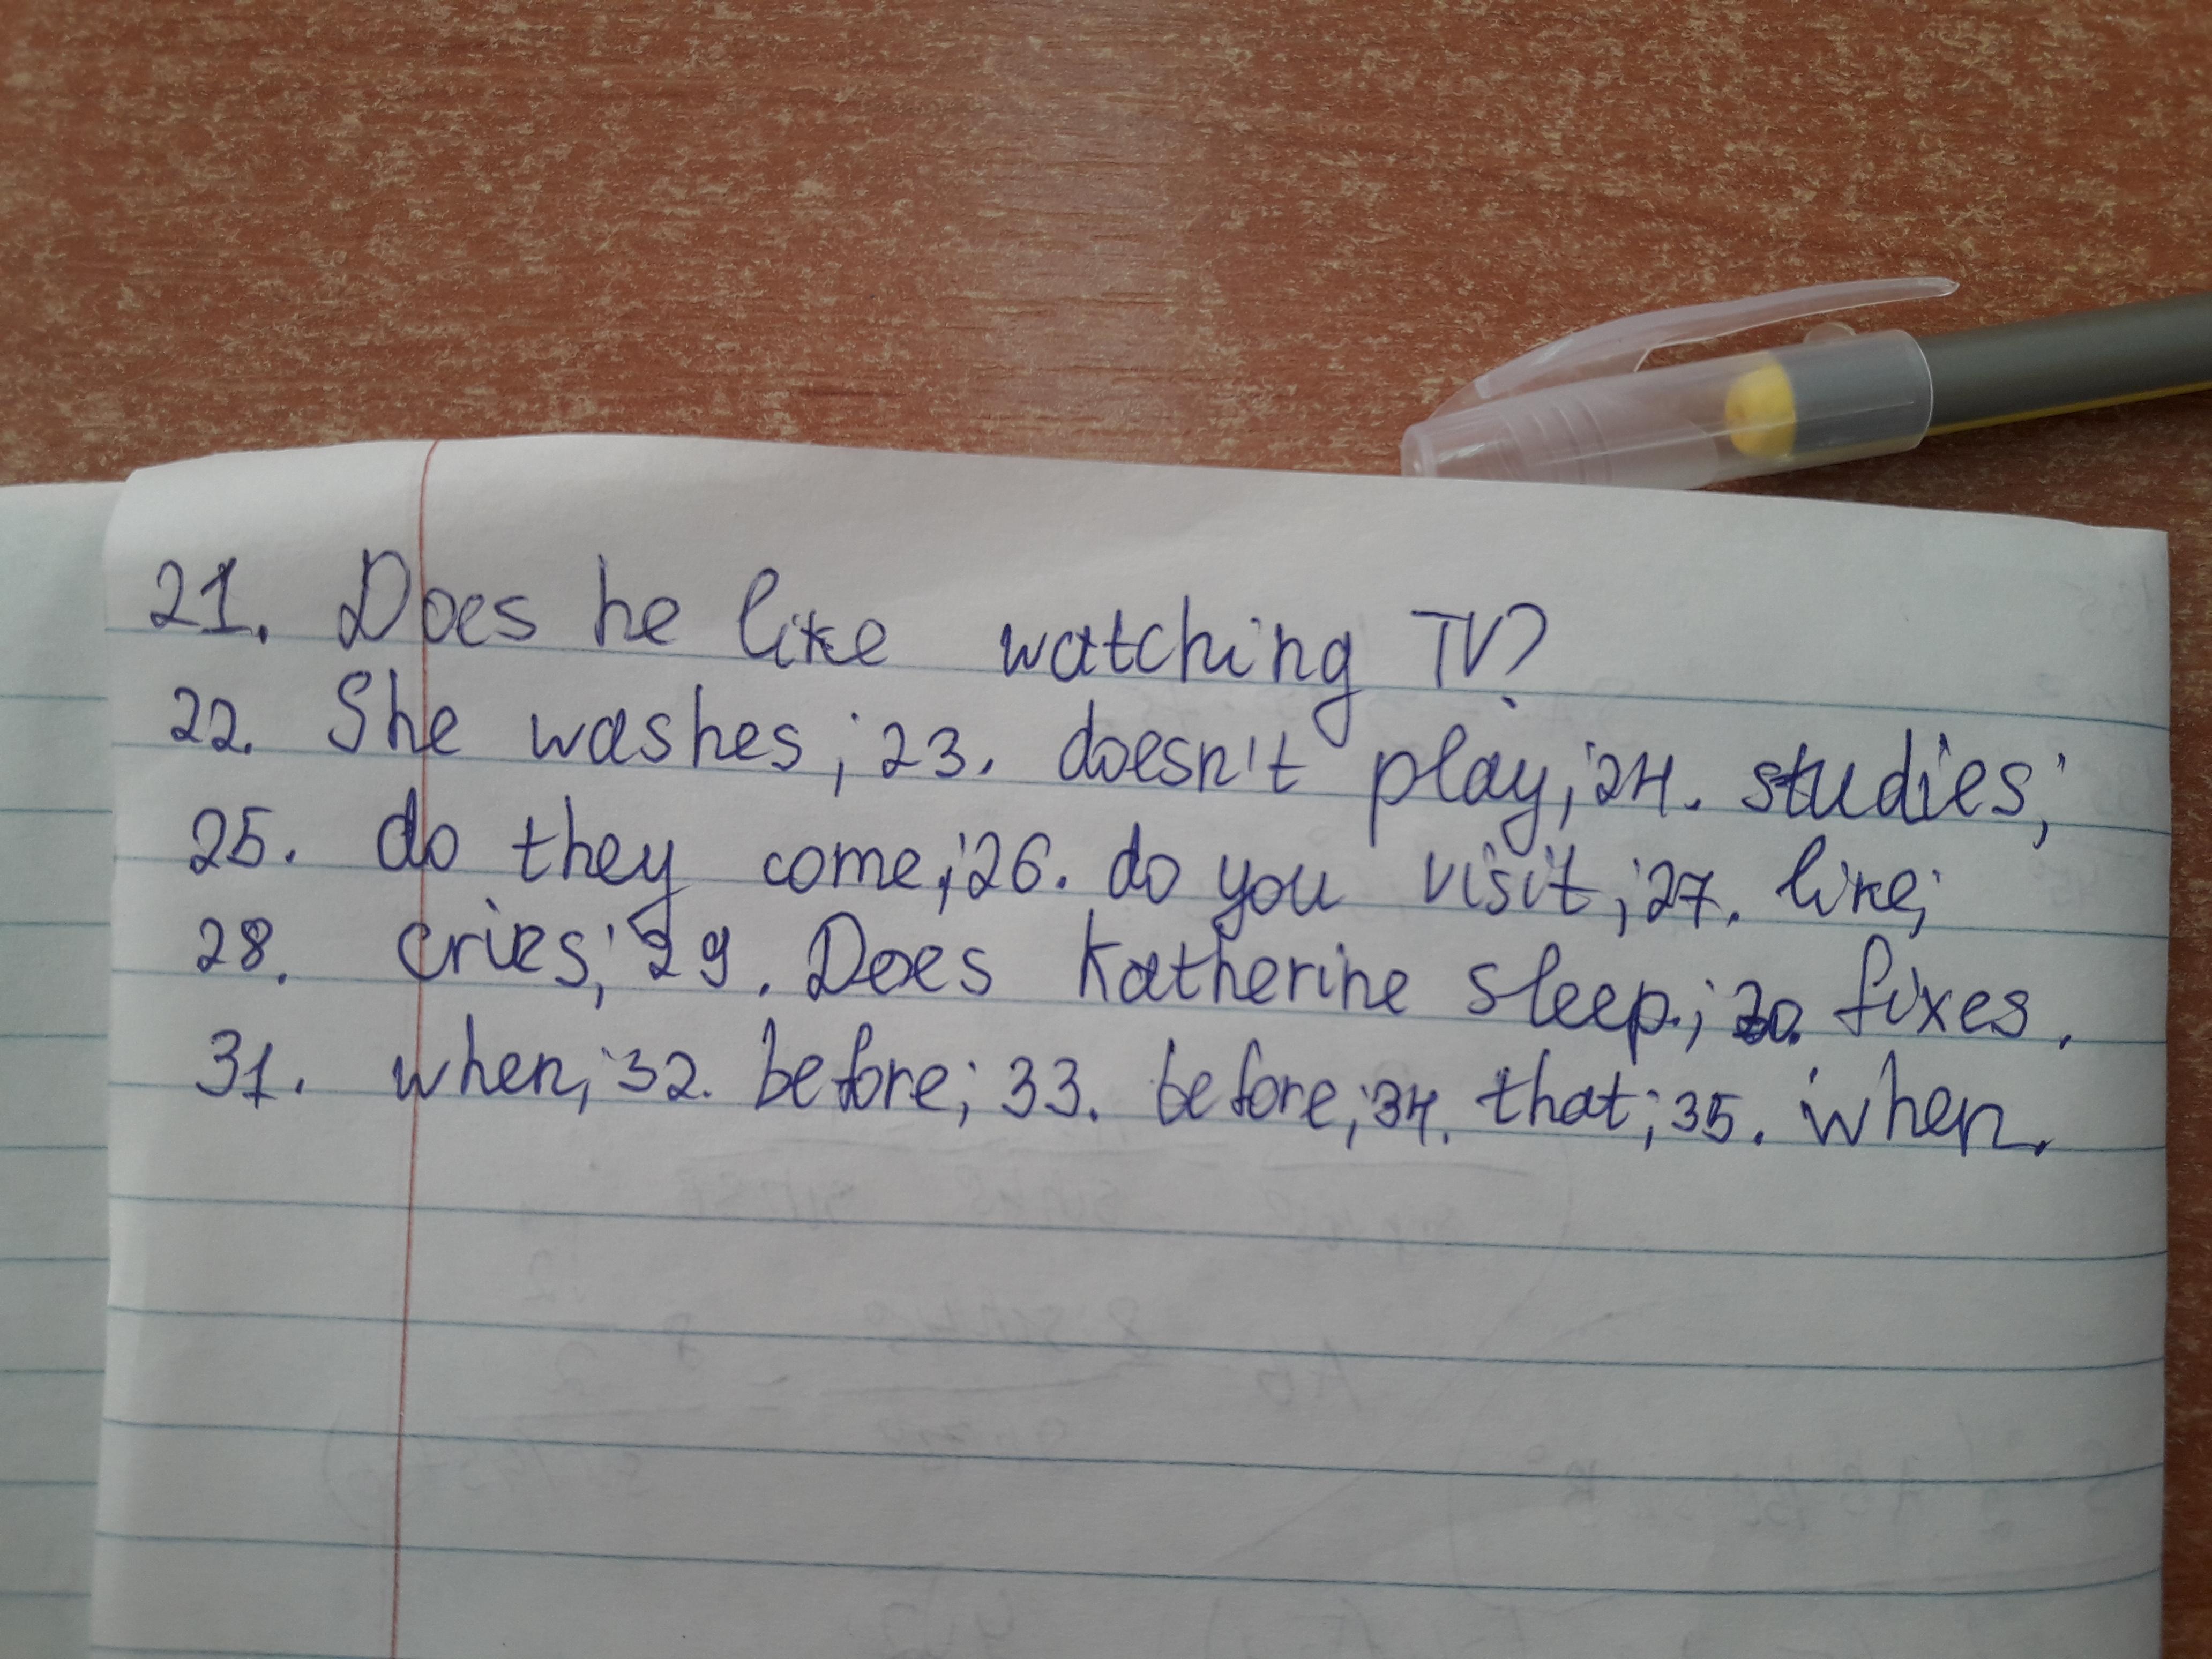 21. Does he like watching TV?
22. She washes; 23. doesn't play; 24. studies;
25. do they come; 26. do you visit; 27. like;
28. cries; 29. Does Katherine sleep; 30. fixes.
31. when; 32. before; 33. before; 34. that; 35. when.